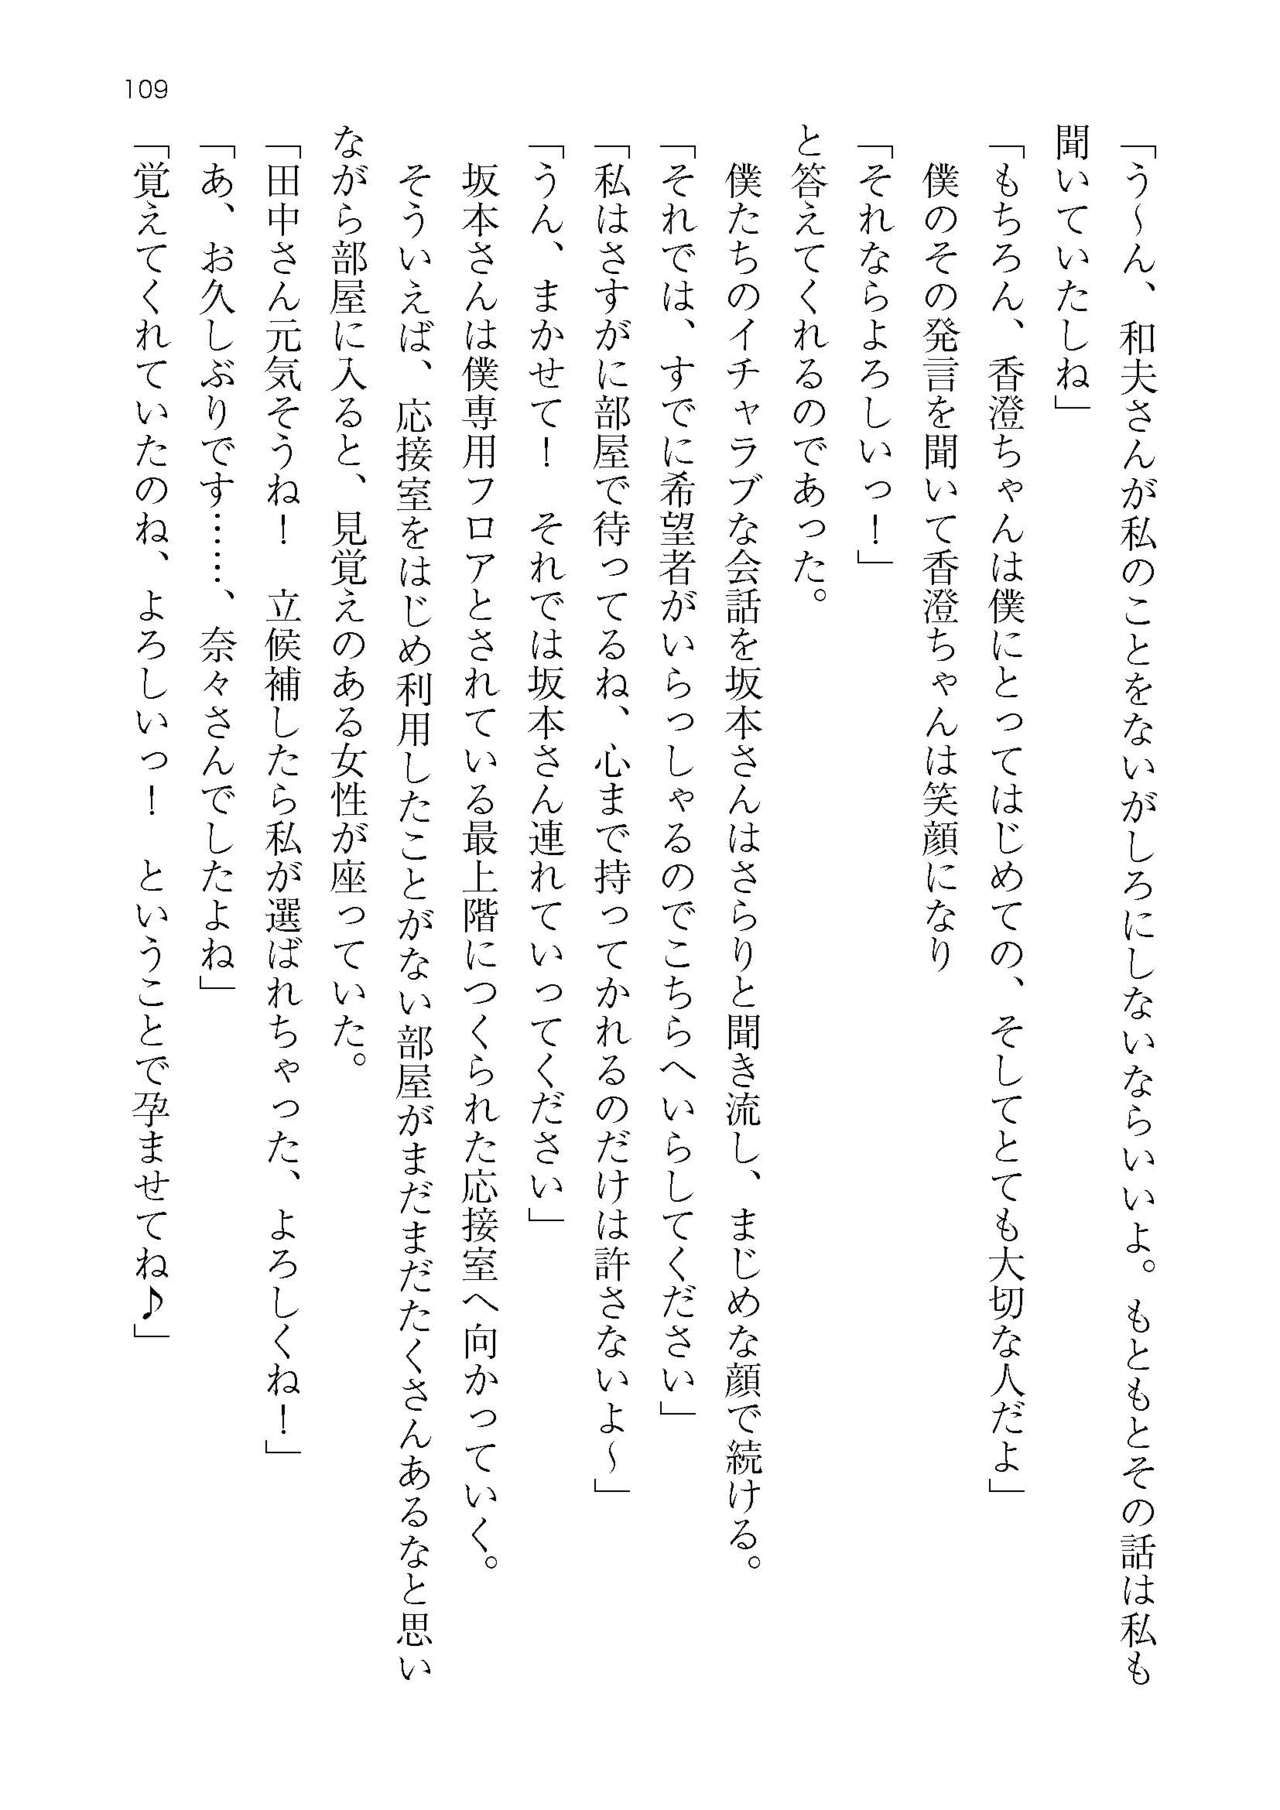 109
「う～ん、和夫さんが私のことをないがしろにしないならいいよ。もともとその話は私も
聞いていたしね」
「もちろん、香澄ちゃんは僕にとってはじめての、そしてとても大切な人だよ」
僕のその発言を聞いて香澄ちゃんは笑顔になり
「それならよろしいっ！」
と答えてくれるのであった。
僕たちのイチャラブな会話を坂本さんはさらりと聞き流し、まじめな顔で続ける。
「それでは、すでに希望者がいらっしゃるのでこちらへいらしてください」
「私はさすがに部屋で待ってるね、心まで持ってかれるのだけは許さないよ～」
「うん、まかせて！　それでは坂本さん連れていってください」
坂本さんは僕専用フロアとされている最上階につくられた応接室へ向かっていく。
そういえば、応接室をはじめ利用したことがない部屋がまだまだたくさんあるなと思い
ながら部屋に入ると、見覚えのある女性が座っていた。
「田中さん元気そうね！　立候補したら私が選ばれちゃった、よろしくね！」
「あ、お久しぶりです……、奈々さんでしたよね」
「覚えてくれていたのね、よろしいっ！　ということで孕ませてね♪」